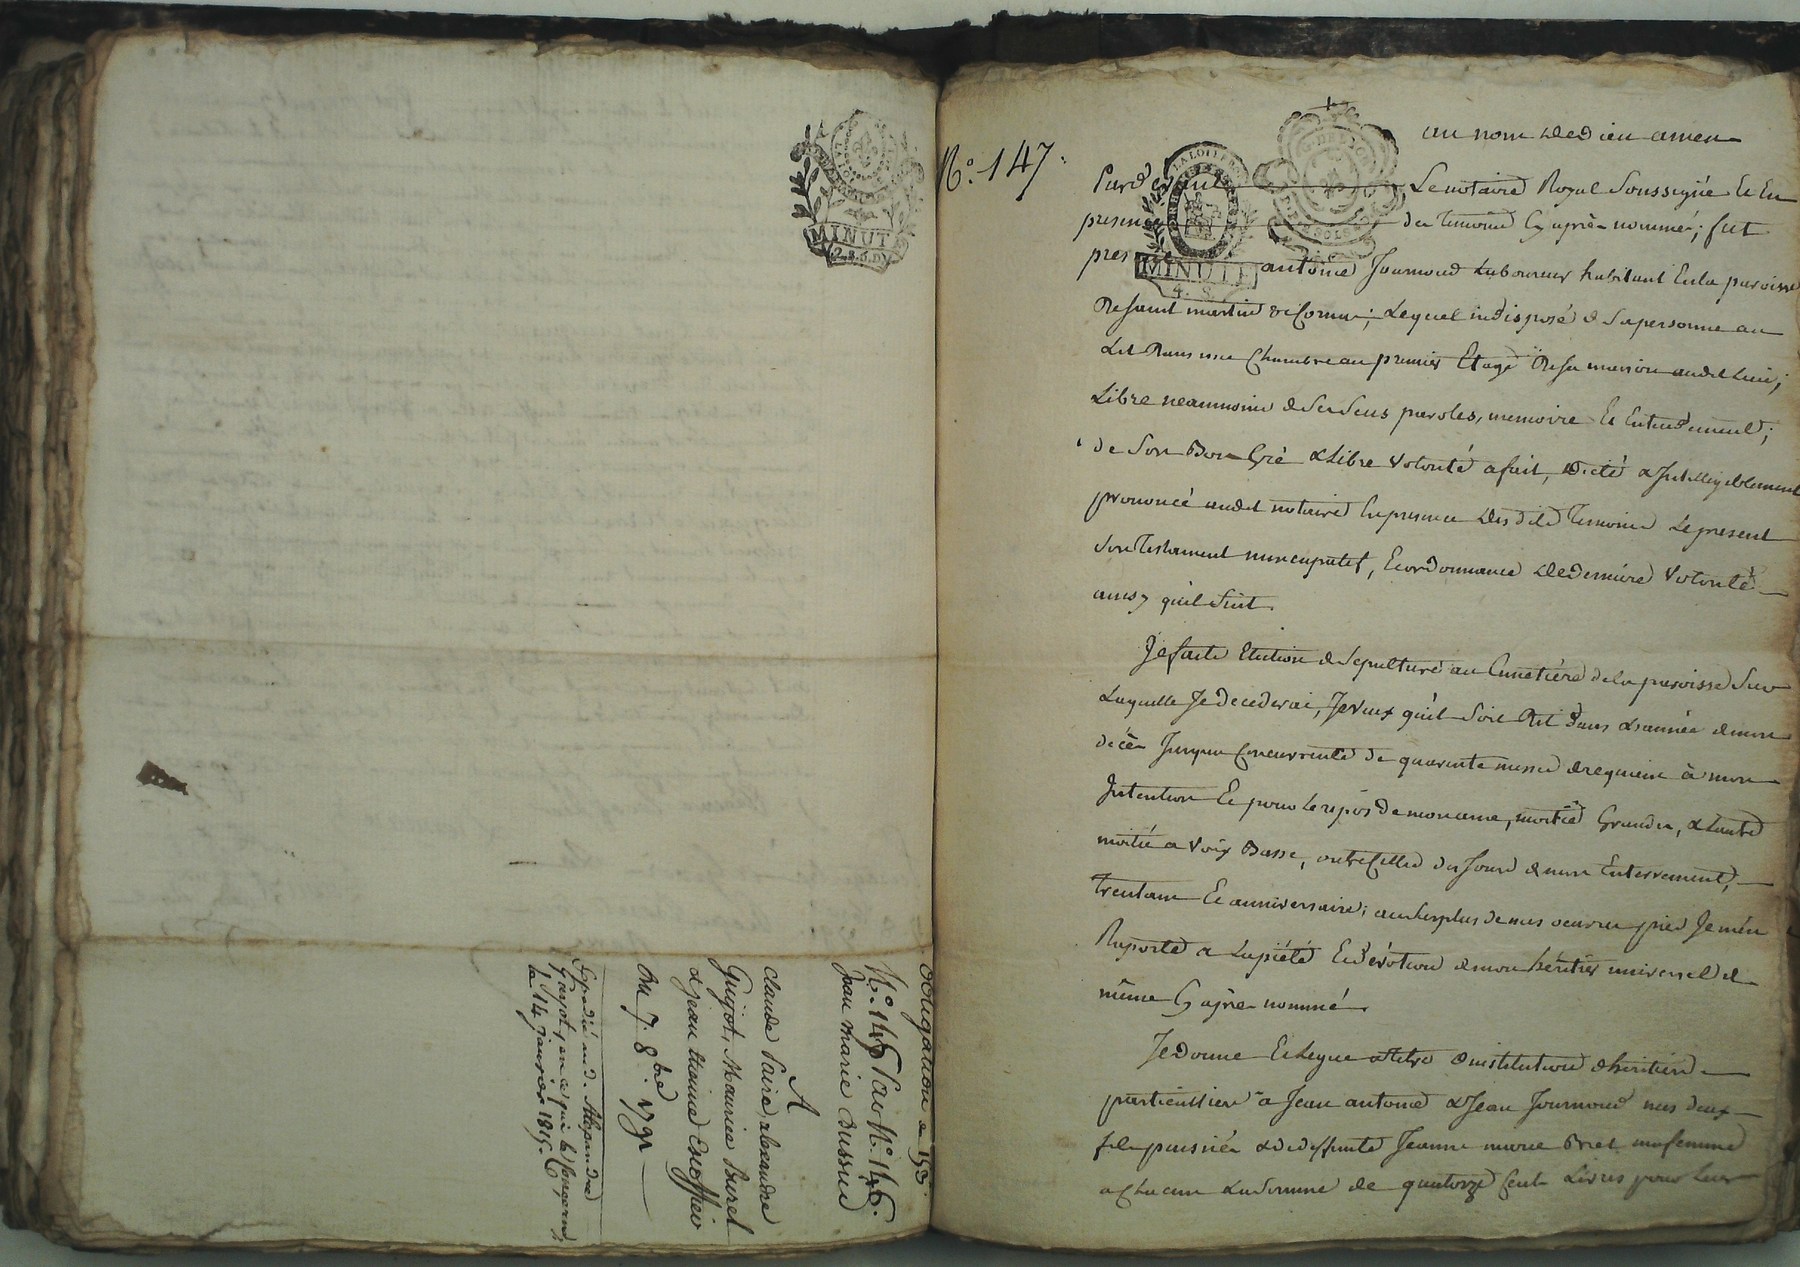 MINUTE
2.S.6.D
Obligation
N.° 146 Par N.° 146.
Jean Marie Dussud
A
Claude Paire, alexandre
Guyot, Maurice Burel
& jean Etienne Escoffier
Du 7. 8bre 1791
Expedié au d. Alexandre
Guyot, en ce qui le Concerne,
le 14 janvier 1815.
N.° 147.
au nom de dieu amen
LA LOI LE ROI
MINUTE
4.S.
Pardevant Le notaire Royal Soussigné Et En
presence des temoins Cy après nommés; fut
pres antoine Journoud Laboureur habitant En la paroisse
De saint martin de Cornas; Lequel indisposé de Sa personne au
Lit Dans une Chambre au premier Etage De sa maison audit Lieu;
Libre neanmoins de Ses Sens paroles, memoire Et Entendement;
de Son Bon Gré & Libre Volonté a fait, dicté & Intelligiblement
prononcé audit notaire En presence des dits temoins Le present
Son Testament nuncupatif, Et ordonnance de derniere Volonté
ainsy qu'il Suit.
Je faits Election de Sepulture au Cimetière de la paroisse Sur
Laquelle Je decederai, Je Veux qu'il Soit Dit Dans L'année de mon
decès Jusqua Concurrente de quarante messes de requiem à mon
Intention Et pour Le repos De mon ame, moitié Grandes, & L'autre
moitié a Voix Basse, outre Celles des Jours de mon Enterrement,
trentain Et anniversaire; au Surplus de mes oeuvres pies Je m'en
Raporte a La piété Et dévotion de mon héritier universel &
même Cy après nommé.
Je Donne Et Legue a Titre d'institution d'héritiers
particuliers à Jean antoine & Jean Journoud mes deux
fils puisnés & de deffunte Jeanne marie Briet ma femme
a Chacun La Somme de quatorze Cent Livres pour Leur